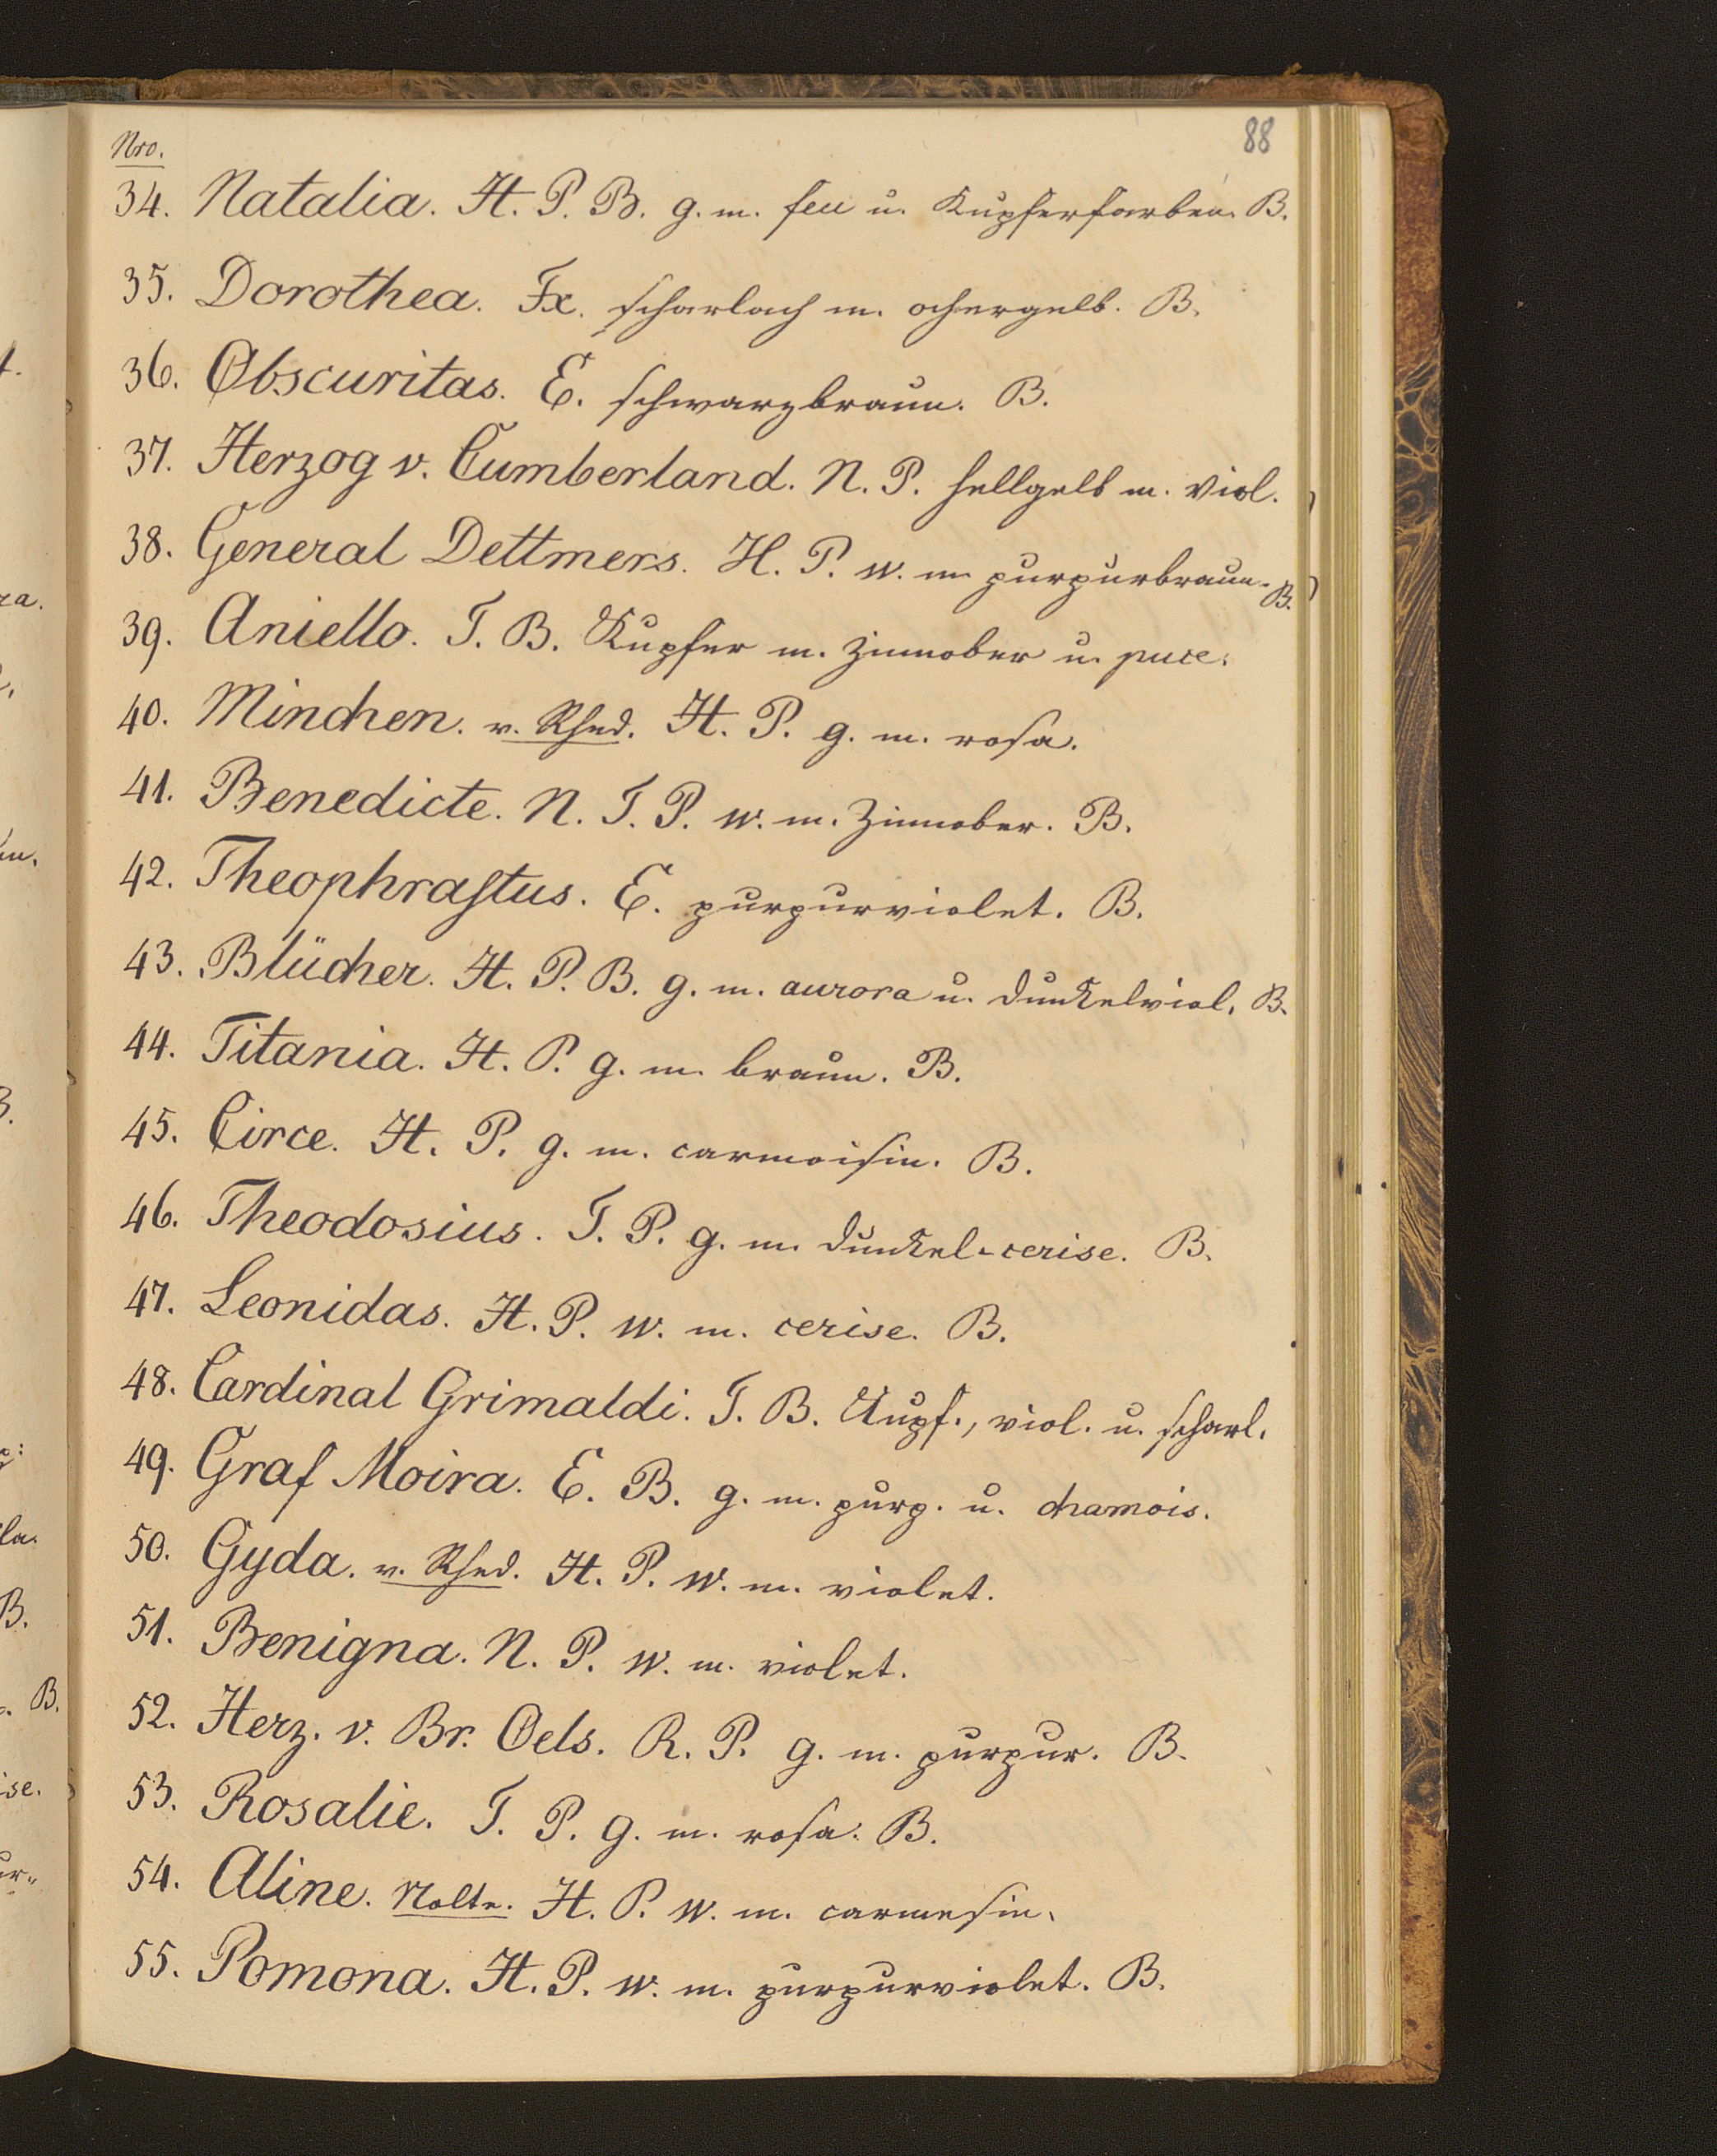 88
Nro.
34. Natalia. H. P. B. g. m. feu u. Kupferfarben. B.
35. Dorothea. Fx. scharlach m. ochergelb. B.
36. Obscuritas. E. schwarzbraun. B.
37. Herzog v. Cumberland. N. P. hellgelb m. viol.
38. General Dettmers. H. P. w. m. purpurbraun. B.
39. Aniello. T. B. Kupfer m. Zinnober u. puce.
40. Minchen. v. Rhed. H. P. g. m. rosa.
41. Benedicte. N. T. P. w. m. Zinnober. B.
42. Theophrastus. E. purpurviolet. B.
43. Blücher. H. P. B. g. m. aurora u. dunkelviol. B.
44. Titania. H. P. g. m. braun. B.
45. Circe. H. P. g. m. carmoisin. B.
46. Theodosius. T. P. g. m. dunkel-cerise. B.
47. Leonidas. H. P. w. m. cerise. B.
48. Cardinal Grimaldi. T. B. Kupf., viol. u. scharl.
49. Graf Moira. E. B. g. m. purp. u. chamois.
50. Gyda. v. Rhed. H. P. w. m. violet.
51. Benigna. N. P. w. m. violet.
52. Herz. v. Br. Oels. R. P. g. m. purpur. B.
53. Rosalie. T. P. g. m. rosa. B.
54. Aline. Nolte. H. P. w. m. carmesin.
55. Pomona. H. P. w. m. purpurviolet. B.